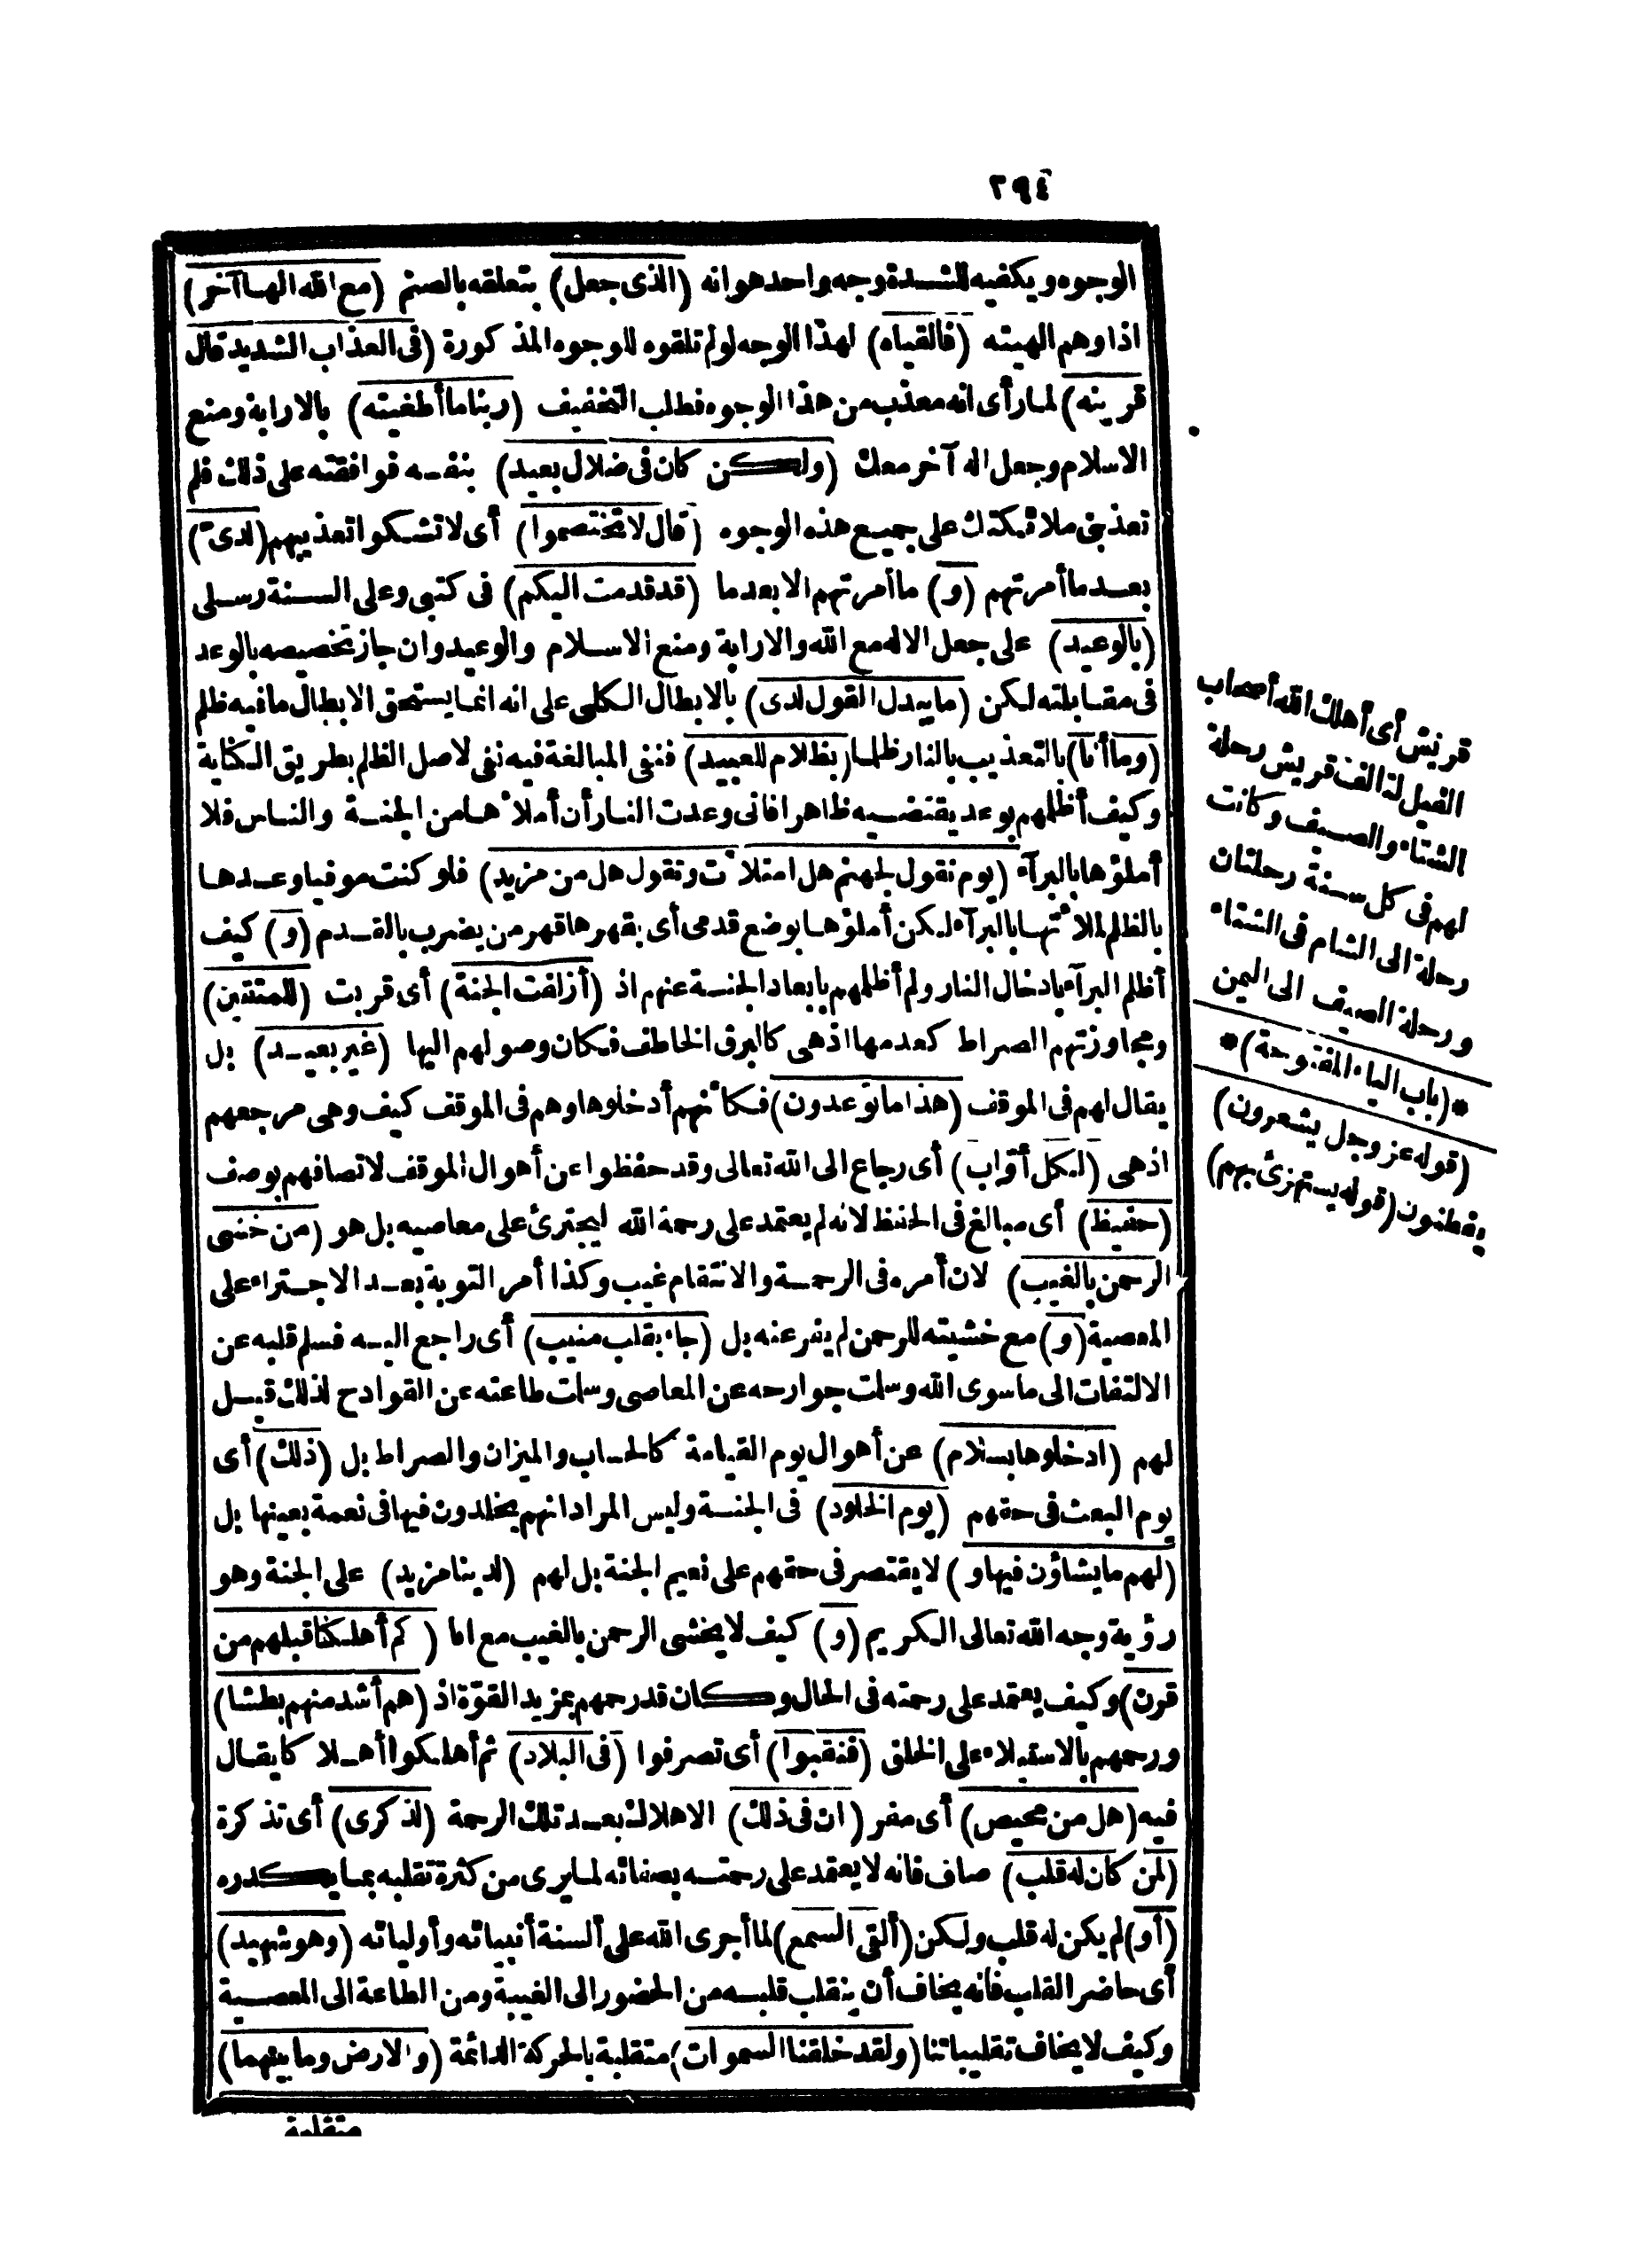 ٢٩٤
الوجوه ويكفيه للشدة وجه واحد هو انه (الذى جعل) بتعلقه بالصنم (مع الله الها آخر)
اذا وهم الهيته (فألقياه) لهذا الوجه لو لم تلقوه للوجوه المذكورة (فى العذاب الشديد قال
قرينه) لما رأى انه معذب من هذا الوجوه فطلب التخفيف (ربنا ما أطغيته) بالارابة ومنع
الاسلام وجعل اله آخر معك (ولكن كان فى ضلال بعيد) بنفسه فوافقته على ذلك فلم
تعذبنى ملائكتك على جميع هذه الوجوه (قال لا تختصموا) أى لا تشكوا تعذيبهم (لدىّ)
بعد ما أمرتهم (و) ما أمرتهم الا بعد ما (قد قدمت اليكم) فى كتبى وعلى السنة رسلى
(بالوعيد) على جعل الاله مع الله والارابة ومنع الاسلام والوعيد وان جاز تخصيصه بالوعد
فى مقابلته لكن (ما يبدل القول لدى) بالابطال الكلى على انه انما يستحق الابطال ما فيه ظلم
(وما أنا) بالتعذيب بالنار ظلما (بظلام للعبيد) فنفى المبالغة فيه نفى لاصل الظلم بطريق الكناية
وكيف أظلمهم بوعد يقتضيه ظاهرا فانى وعدت النار أن أملأها من الجنة والناس فلا
أملؤها بالبرآء (يوم نقول لجهنم هل امتلأت وتقول هل من مزيد) فلو كنت موفيا وعدها
بالظلم لملأتها بالبرآء لكن أملؤها بوضع قدمى أى بقهرها قهر من يضرب بالقدم (و) كيف
أظلم البرآء بادخال النار ولم أظلمهم بابعاد الجنة عنهم اذ (أزلفت الجنة) أى قربت (للمتقين)
ومجاوزتهم الصراط كعدمها اذ هى كالبرق الخاطف فكان وصولهم اليها (غير بعيد) بل
يقال لهم فى الموقف (هذا ما توعدون) فكأنهم أدخلوها وهم فى الموقف كيف وهى مرجعهم
اذ هى (لكل أوّاب) أى رجاع الى الله تعالى وقد حفظوا عن أهوال الموقف لاتصافهم بوصف
(حفيظ) أى مبالغ فى الحفظ لانه لم يعتمد على رحمة الله ليجترئ على معاصيه بل هو (من خشى
الرحمن بالغيب) لان أمره فى الرحمة والانتقام غيب وكذا أمر التوبة بعد الاجتراء على
المعصية (و) مع خشيته للرحمن لم يفر عنه بل (جاء بقلب منيب) أى راجع اليه فسلم قلبه عن
الالتفات الى ما سوى الله وسلمت جوارحه عن المعاصى وسلمت طاعته عن القوادح لذلك قيل
لهم (ادخلوها بسلام) عن أهوال يوم القيامة كالحساب والميزان والصراط بل (ذلك) أى
يوم البعث فى حقهم (يوم الخلود) فى الجنة وليس المراد انهم يخلدون فيها فى نعمة بعينها بل
(لهم ما يشاؤن فيها و) لا يقتصر فى حقهم على نعيم الجنة بل لهم (لدينا مزيد) على الجنة وهو
رؤية وجه الله تعالى الكريم (و) كيف لا يخشى الرحمن بالغيب مع انا (كم أهلكنا قبلهم من
قرن) وكيف يعتمد على رحمته فى الحال وكان قد رحمهم بمزيد القوّة اذ (هم أشد منهم بطشا)
ورحمهم بالاستيلاء على الخلق (فنقبوا) أى تصرفوا (فى البلاد) ثم أهلكوا أهلا كا يقال
فيه (هل من محيص) أى مفر (ان فى ذلك) الاهلاك بعد تلك الرحمة (لذكرى) أى تذكرة
(لمن كان له قلب) صاف فانه لا يعتمد على رحمته بصفائه لما يرى من كثرة تقلبه بما يكدره
(أو) لم يكن له قلب ولكن (ألقى السمع) لما أجرى الله على ألسنة أنبيائه وأوليائه (وهو شهيد)
أى حاضر القلب فانه يخاف أن ينقلب قلبه من الحضور الى الغيبة ومن الطاعة الى المعصية
وكيف لا يخاف تقليباتنا (ولقد خلقنا السموات) متقلبة بالحركة الدائمة (والارض وما بينهما)
متقلبة
قريش أى أهلك الله أصحاب
الفيل لتالف قريش رحلة
الشتاء والصيف وكانت
لهم فى كل سنة رحلتان
رحلة الى الشام فى الشتاء
ورحلة الصيف الى اليمن
*(باب الياء المفتوحة)*
(قوله عز وجل يشعرون)
يفطنون (قوله يستهزئ بهم)